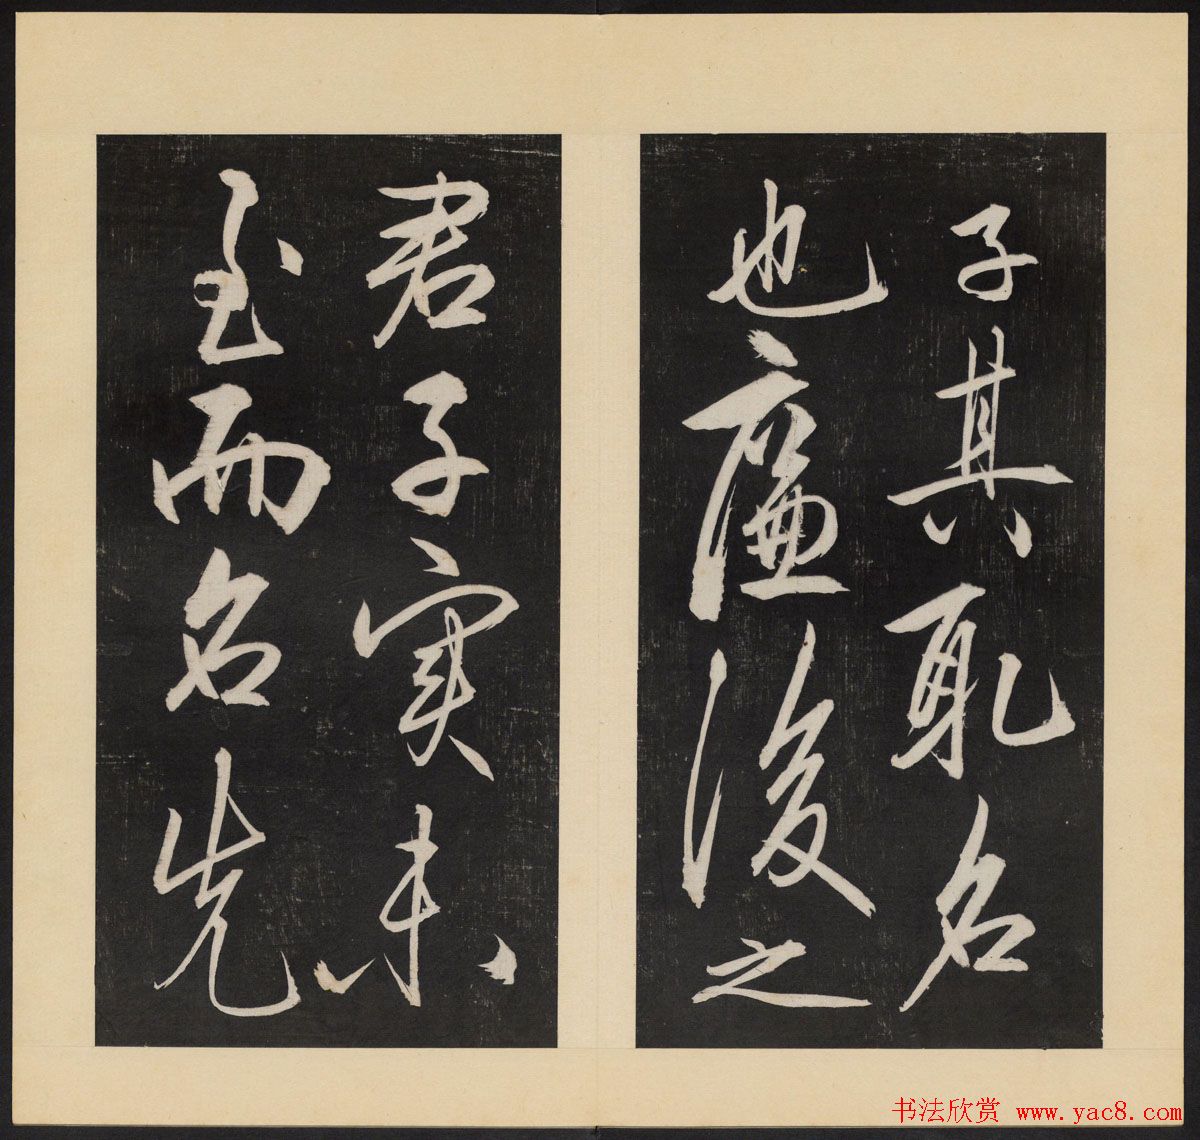 子其耻名
也廉後之
君子実未
至而名先
书法欣赏 www.yac8.com